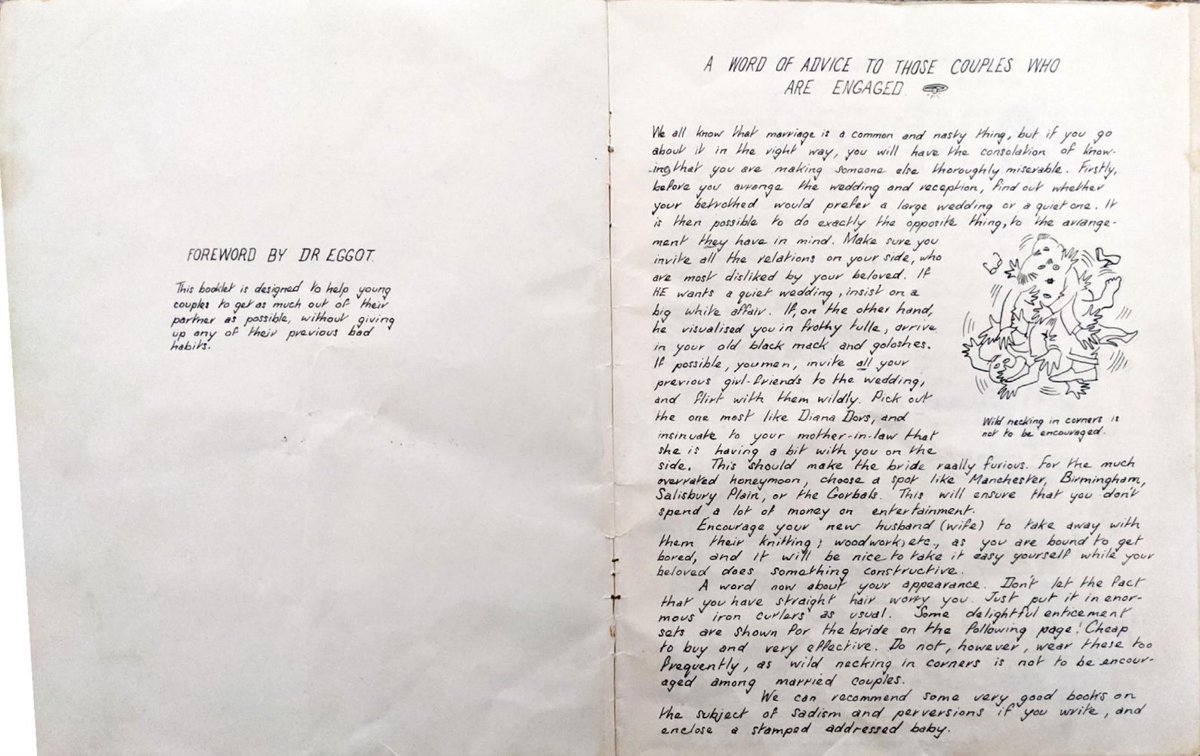 FOREWORD BY DR EGGOT.
This booklet is designed to help young
couples to get as much out of their
partner as possible, without giving
up any of their previous bad
habits.
A WORD OF ADVICE TO THOSE COUPLES WHO
ARE ENGAGED.
We all know that marriage is a common and nasty thing, but if you go
about it in the right way, you will have the consolation of know-
ing that you are making someone else thoroughly miserable. Firstly,
before you arrange the wedding and reception, find out whether
your betrothed would prefer a large wedding or a quiet one. It
is then possible to do exactly the opposite thing, to the arrange-
ment they have in mind. Make sure you
invite all the relations on your side, who
are most disliked by your beloved. If
HE wants a quiet wedding, insist on a
big white affair. If, on the other hand,
he visualised you in frothy tulle, arrive
in your old black mack and goloshes.
If possible, you men, invite all your
previous girl-friends to the wedding,
and flirt with them wildly. Pick out
the one most like Diana Dors, and
insinuate to your mother-in-law that
she is having a bit with you on the
side. This should make the bride really furious. For the much
overrated honeymoon, choose a spot like Manchester, Birmingham,
Salisbury Plain, or the Gorbals. This will ensure that you don't
spend a lot of money on entertainment.
Encourage your new husband (wife) to take away with
them their knitting; woodwork, etc., as you are bound to get
bored, and it will be nice to take it easy yourself while your
beloved does something constructive.
A word now about your appearance. Don't let the fact
that you have straight hair worry you. Just put it in enor-
mous iron curlers as usual. Some delightful enticement
sets are shown for the bride on the following page! Cheap
to buy and very effective. Do not, however, wear these too
frequently, as wild necking in corners is not to be encour-
aged among married couples.
We can recommend some very good books on
the subject of sadism and perversions if you write, and
enclose a stamped addressed baby.
Wild necking in corners is
not to be encouraged.